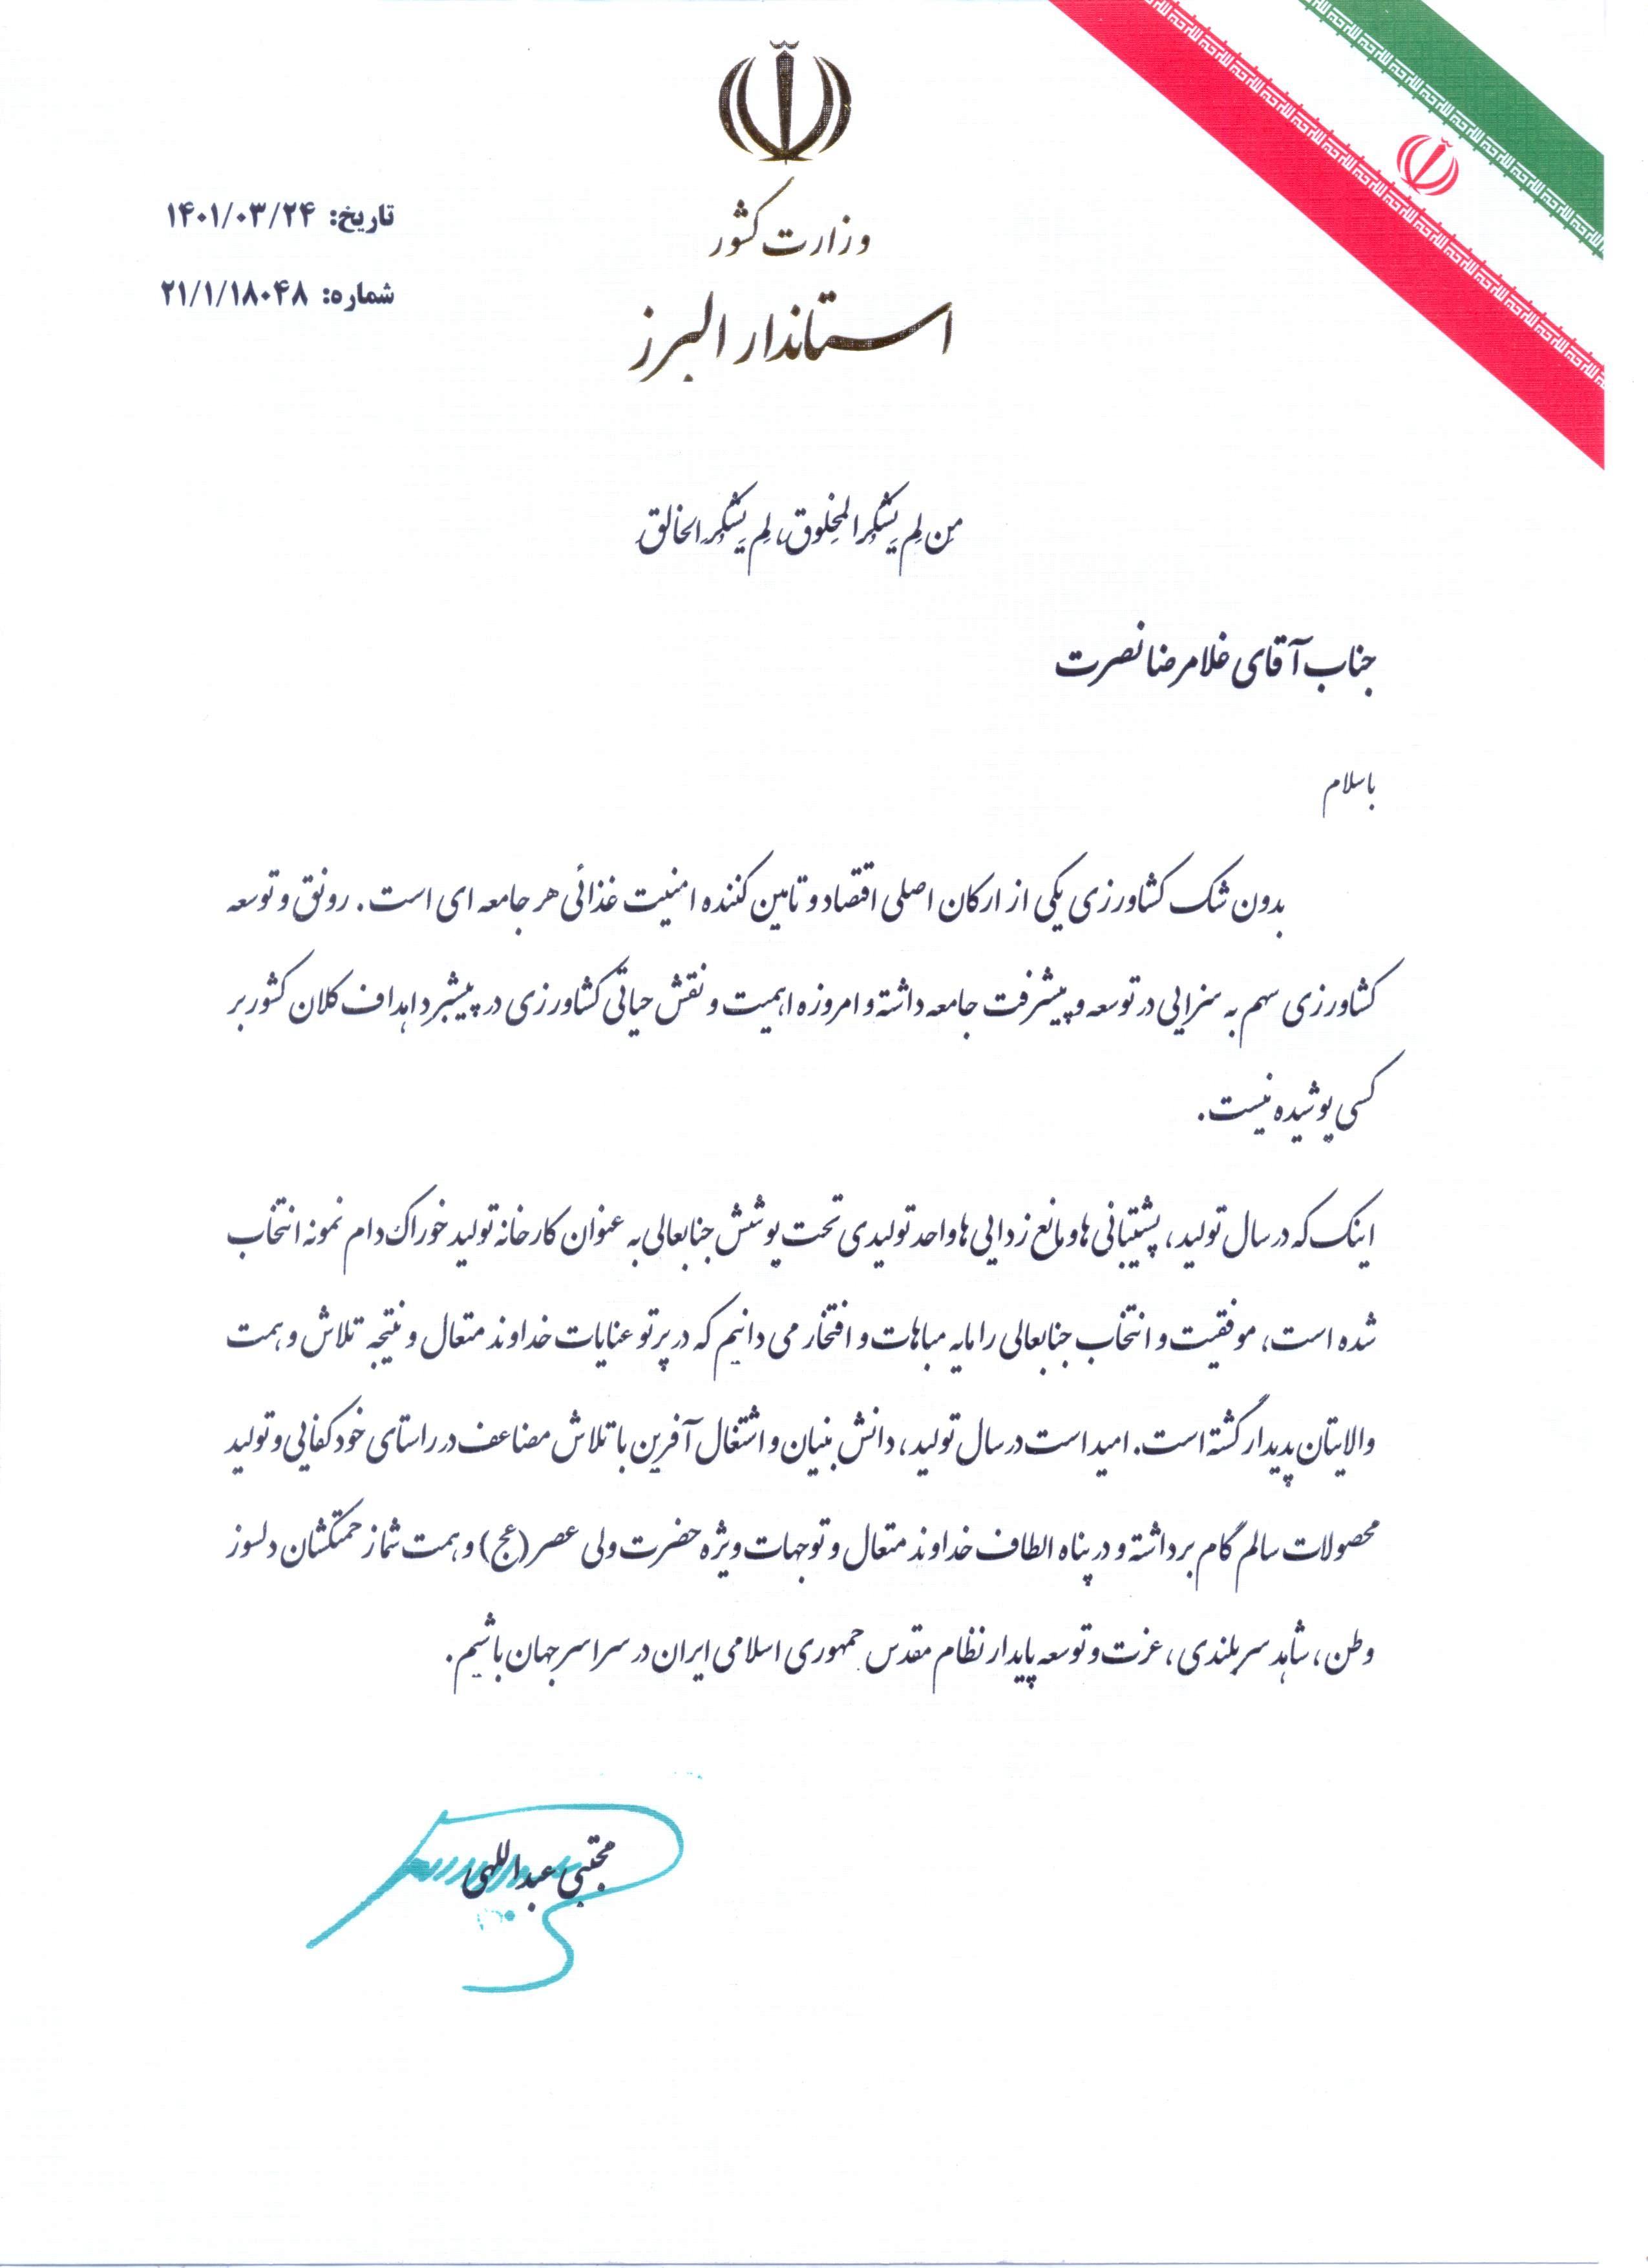 وزارت کشور
استاندار البرز
تاریخ: ۱۴۰۱/۰۳/۲۴
شماره: ۲۱/۱/۱۸۰۴۸
من لم یشکر المخلوق، لم یشکر الخالق
جناب آقای غلامرضا نصرت
با سلام
بدون شک کشاورزی یکی از ارکان اصلی اقتصاد و تامین کننده امنیت غذائی هر جامعه ای است. رونق و توسعه
کشاورزی سهم به سزایی در توسعه و پیشرفت جامعه داشته و امروزه اهمیت و نقش حیاتی کشاورزی در پیشبرد اهداف کلان کشور بر
کسی پوشیده نیست.
اینک که در سال تولید، پشتیبانی ها و مانع زدایی ها واحد تولیدی تحت پوشش جنابعالی به عنوان کارخانه تولید خوراک دام نمونه انتخاب
شده است، موفقیت و انتخاب جنابعالی را مایه مباهات و افتخار می دانیم که در پرتو عنایات خداوند متعال و نتیجه تلاش و همت
والایتان پدیدار گشته است. امید است در سال تولید، دانش بنیان و اشتغال آفرین با تلاش مضاعف در راستای خودکفایی و تولید
محصولات سالم گام برداشته و در پناه الطاف خداوند متعال و توجهات ویژه حضرت ولی عصر (عج) و همت شما از حمتکشان دلسوز
وطن، شاهد سربلندی، عزت و توسعه پایدار نظام مقدس جمهوری اسلامی ایران در سراسر جهان باشیم.
مجتبی عبداللهی